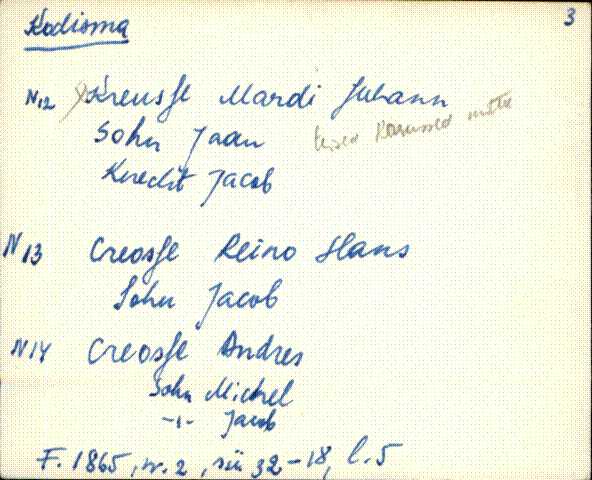 Kodisma 3
N12 Kreusse Mardi Juhann
Sohn Jaan
Knecht Jacob
N13 Creosse Reino Hans
Sohn Jacob
N14 Creosse Andres
Sohn Michel
-"- Jacob
F. 1865, n. 2, sü 32-18, l. 5